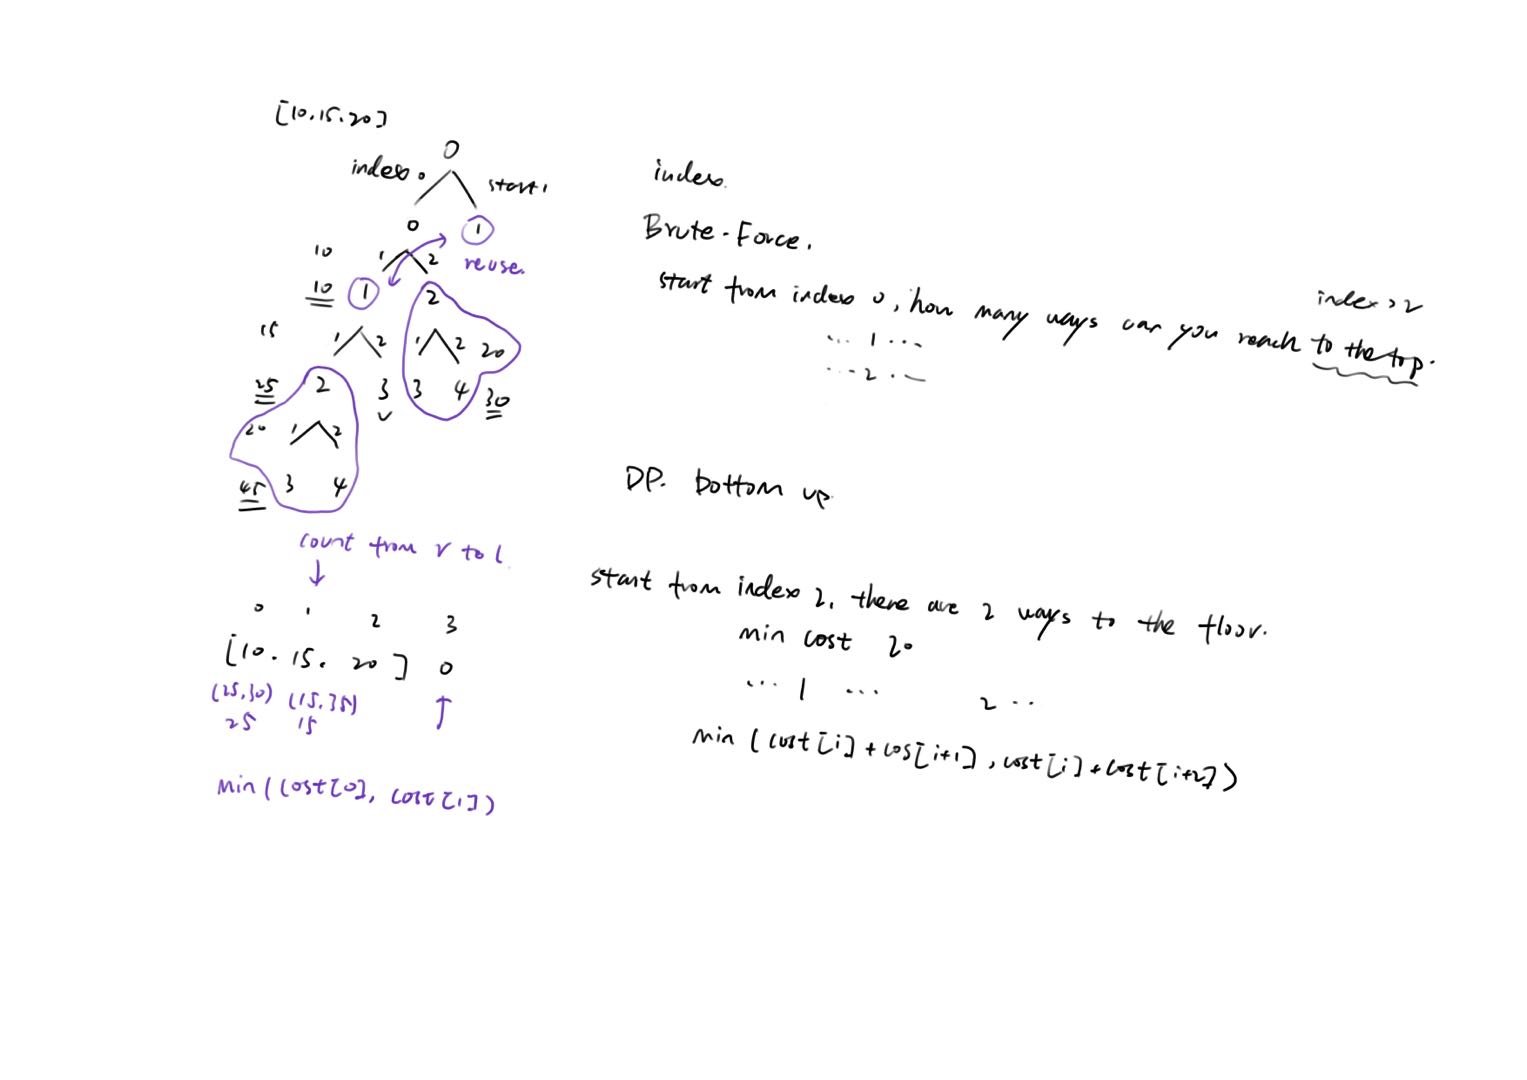 [10.15.20]
0
index 0
start 1
0
1
10
1
2
reuse.
10
1
2
15
1 2
1 2 20
25
2
3
3 4 30
20 1 2
45 3 4
count from r to l.
0 1 2 3
[10. 15. 20] 0
(25.30) (15.35)
25 15
min(cost[0], cost[1])
index.
Brute-Force.
start from index 0, how many ways can you reach to the top.
index > 2
... 1 ...
... 2 ...
DP. bottom up
start from index 2, there are 2 ways to the floor.
min cost 20
... 1 ... 2 ..
min (cost[i] + cos[i+1], cost[i] + cost[i+2])